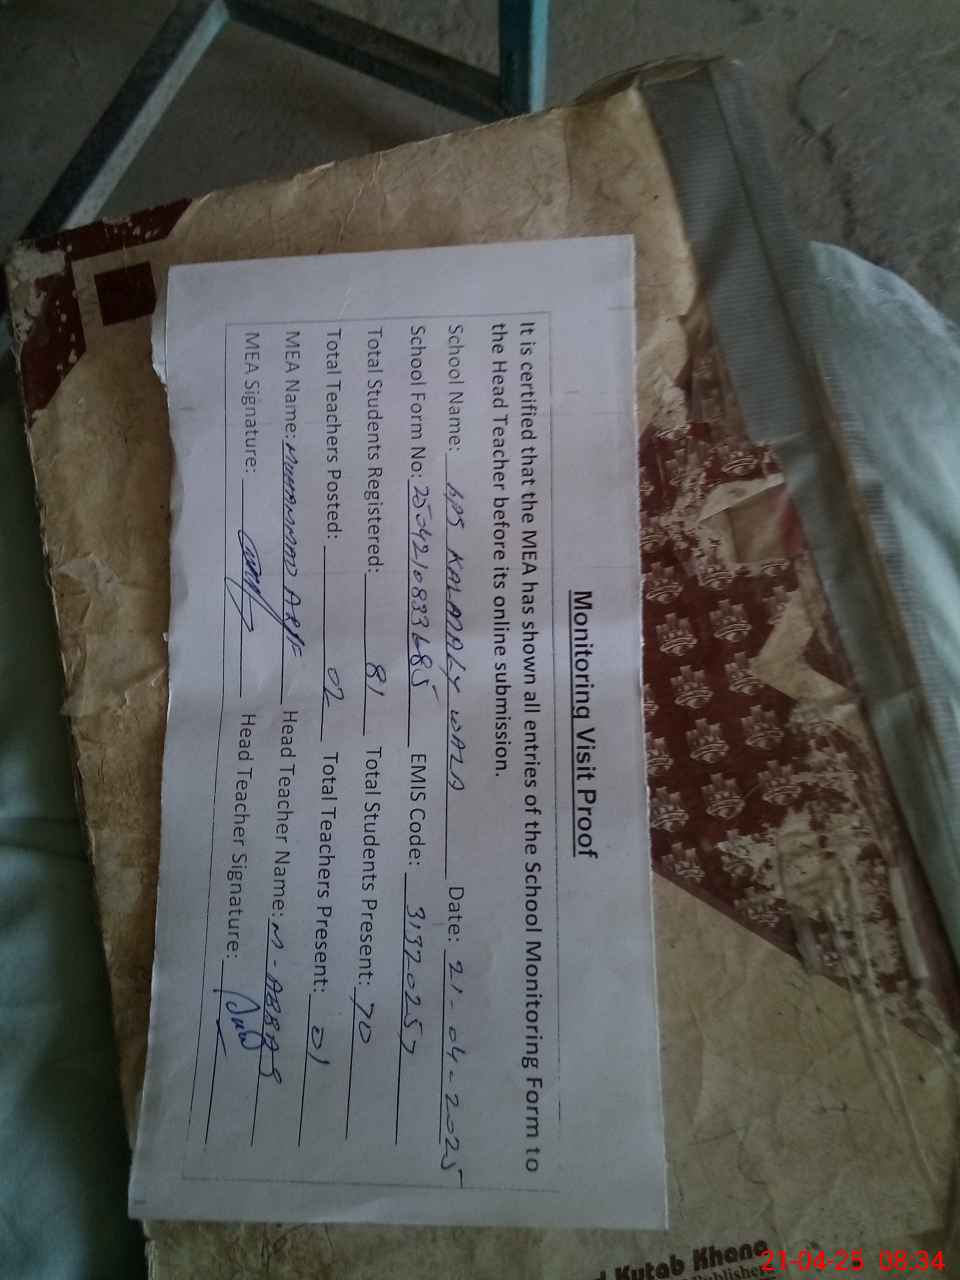 Monitoring Visit Proof
It is certified that the MEA has shown all entries of the School Monitoring Form to
the Head Teacher before its online submission.
School Name: GPS KALARALY WALA Date: 21-04-2025
School Form No: 250421083368 5 EMIS Code: 31320257
Total Students Registered: 81 Total Students Present: 70
Total Teachers Posted: 02 Total Teachers Present: 01
MEA Name: MUHAMMAD ARIF Head Teacher Name: M-ABBAS
MEA Signature: Head Teacher Signature:
Kutab Khana
Publishers
21-04-25 08:34